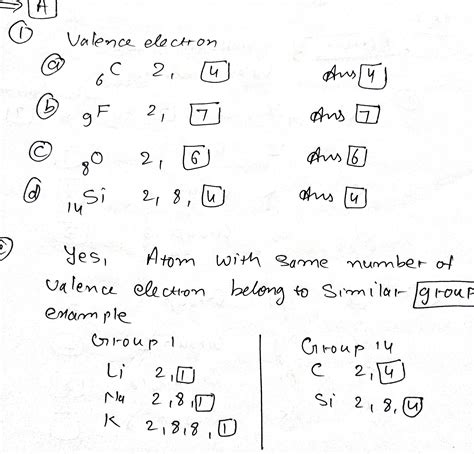 ⇒ A
① Valence electron
ⓐ ₆C 2, 4 Ans 4
ⓑ ₉F 2, 7 Ans 7
ⓒ ₈O 2, 6 Ans 6
ⓓ ₁₄Si 2, 8, 4 Ans 4
Yes, Atom with same number of
valence electron belong to similar group
example
Group 1 Group 14
Li 2, 1 C 2, 4
Na 2, 8, 1 Si 2, 8, 4
K 2, 8, 8, 1